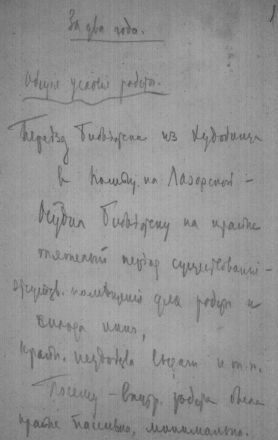 1
За два года.
Общие условия работы.
Переезд библиотеки из
в помещ. на Лазорской –
библиотеку на крайне
тяжелый период существования –
отсутств. помещений для работы и
вывода книг,
крайн. неудобства выдачи и т.п.
Посему – внутр. работа была
крайне пассивна, минимальна.